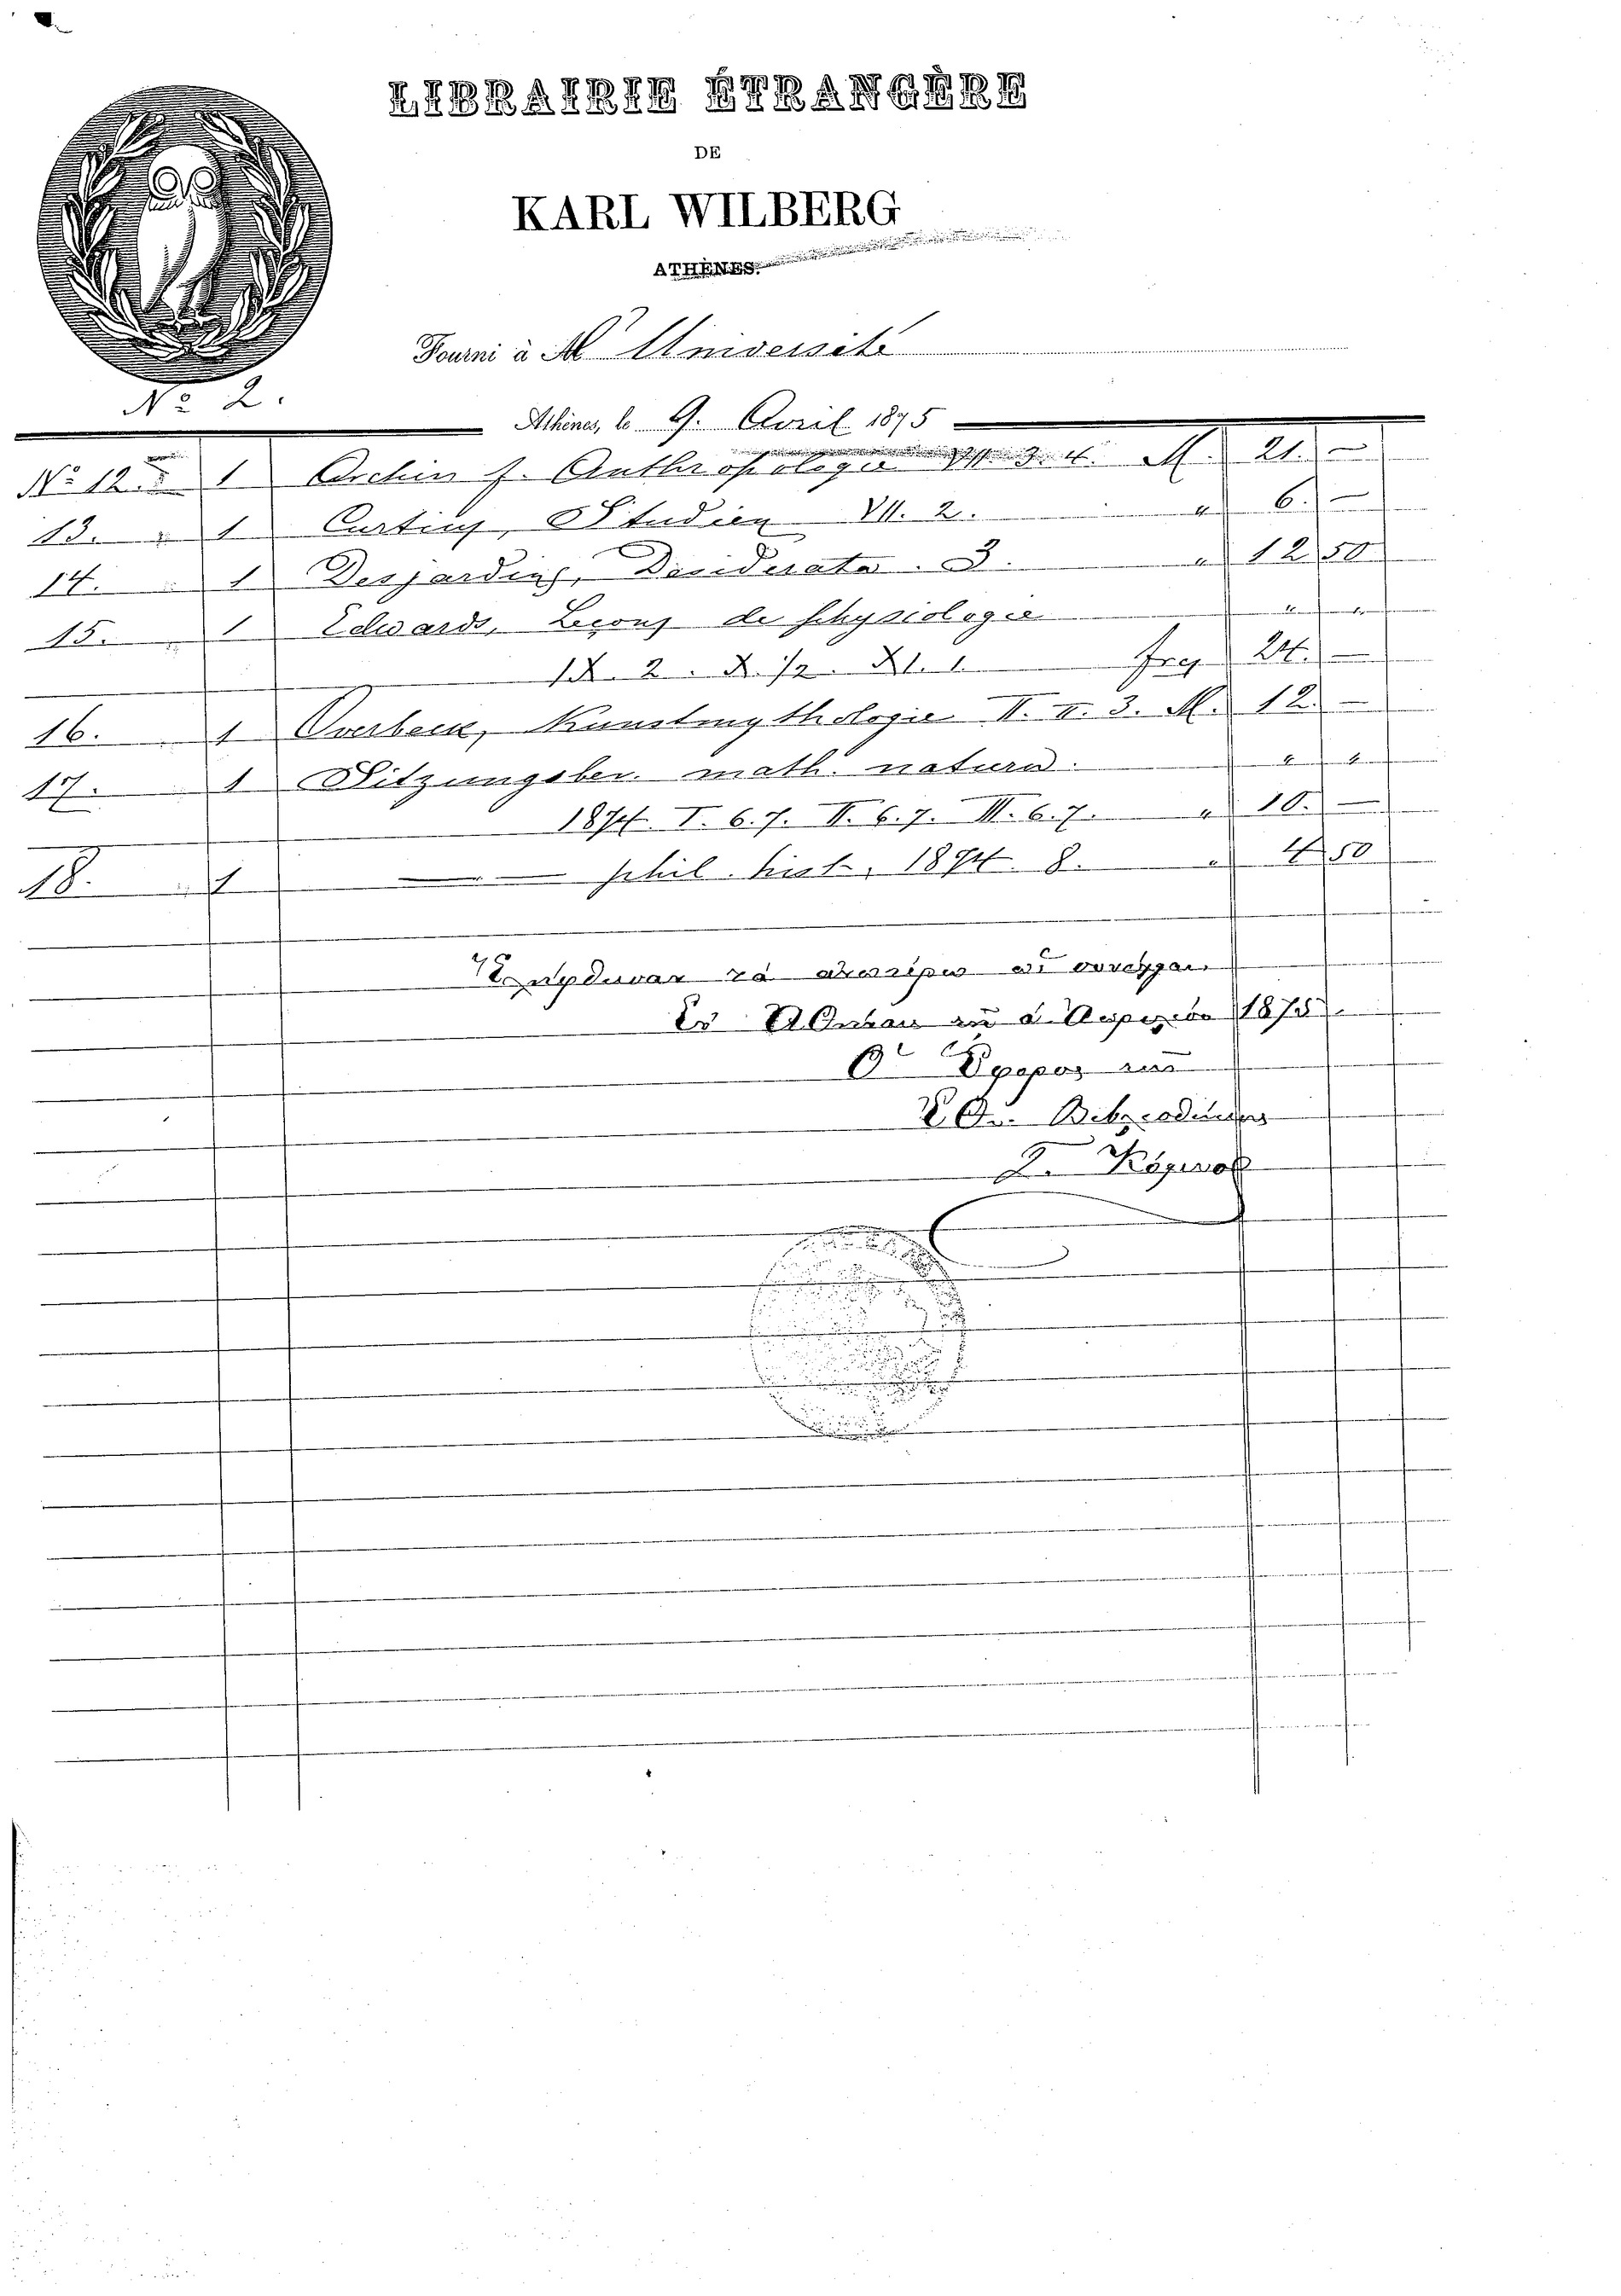 LIBRAIRIE ÉTRANGÈRE
DE
KARL WILBERG
ATHÈNES.
Fourni à M Université
No 2.
Athènes, le 9. Avril 1875
No 12. 1 Archiv f. Anthropologie VII. 3. 4. M. 21. —
13. " 1 Curtius, Studien VII. 2. " 6. —
14. 1 Desjardins, Desiderata. 3. " 12 50
15. 1 Edwards, Leçons de physiologie " "
IX. 2. X. 1/2. XI. 1. frcs 24. —
16. 1 Overbeck, Kunstmythologie II. II. 3. M. 12 —
17. 1 Sitzungsber. math. naturw. " "
1874. I. 6. 7. II. 6. 7. III. 6. 7. " 10. —
18. 1 — — phil. hist. 1874. 8. " 4 50
τὰ
1875.
Ὁ Ἔφορος τῆς